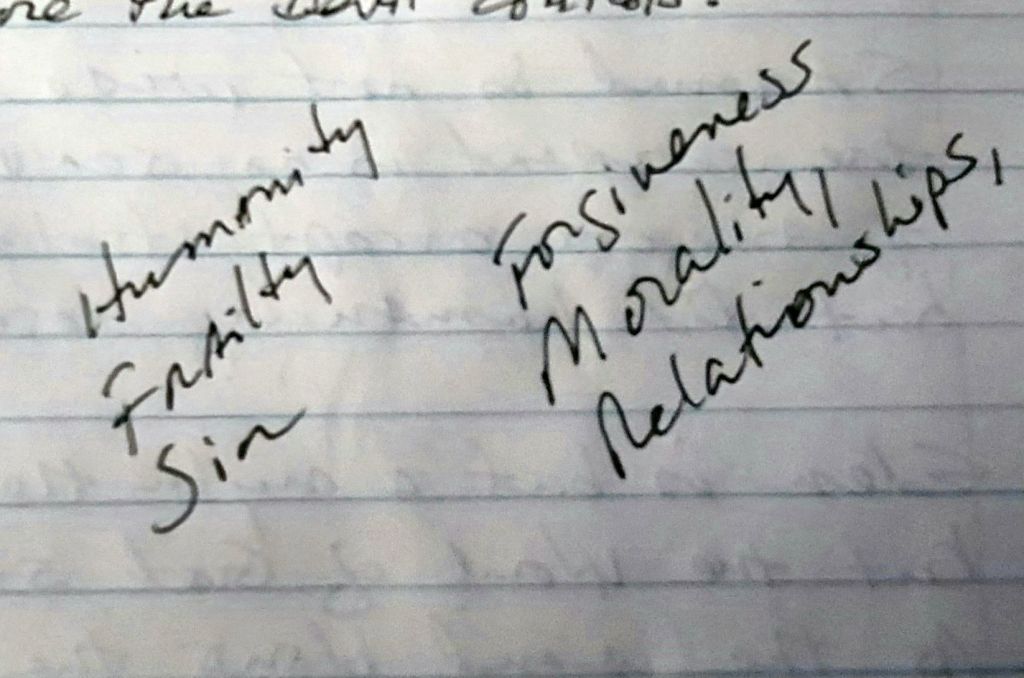 the Devil controls.
Humanity
Frailty
Sin
Forgiveness
Morality,
Relationships,